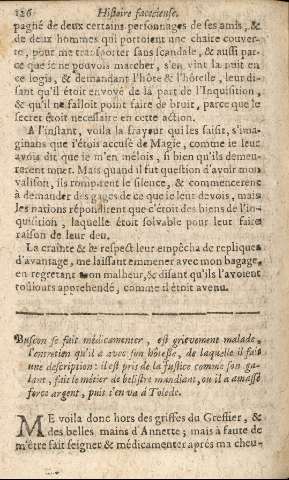 126 Histoire facecieuse.
pagné de deux certains personnages de ses amis, &
de deux hommes qui portoient une chaire couver-
te, pour me transporter sans scandale, & aussi par-
ce que je ne pouvois marcher, s'en vint la nuit en
ce logis, & demandant l'hôte & l'hôtesse, leur di-
sant qu'il étoit envoyé de la part de l'Inquisition,
& qu'il ne falloit point faire de bruit, parce que le
secret étoit necessaire en cette action.
A l'instant, voila la frayeur qui les saisit, s'ima-
ginans que j'étois accusé de Magie, comme je leur
avois dit que je m'en mêlois, si bien qu'ils demeu-
rerent muet. Mais quand il fut question d'avoir mon
valison, ils rompirent le silence, & commencerent
à demander des gages de ce que je leur devois, mais
les nations répondirent que c'étoit des biens de l'In-
quisition, laquelle étoit solvable pour leur faire
raison de leur deu.
La crainte & le respect leur empêcha de repliquer
d'avantage, me laissant emmener avec mon bagage,
en regretant mon malheur, & disant qu'ils l'avoient
toûjours apprehendé, comme il étoit avenu.
Buscon se fait médicamenter, est grievement malade,
l'entretien qu'il a avec son hôtesse, de laquelle il fait
une description: il est pris de la Justice comme son ga-
lant, fait le métier de belistre mandiant, ou il a amassé
force argent, puis s'en va à Tolede.
ME voila donc hors des griffes du Greffier, &
des belles mains d'Annette; mais à faute de
m'être fait seigner & médicamenter aprés ma cheu-